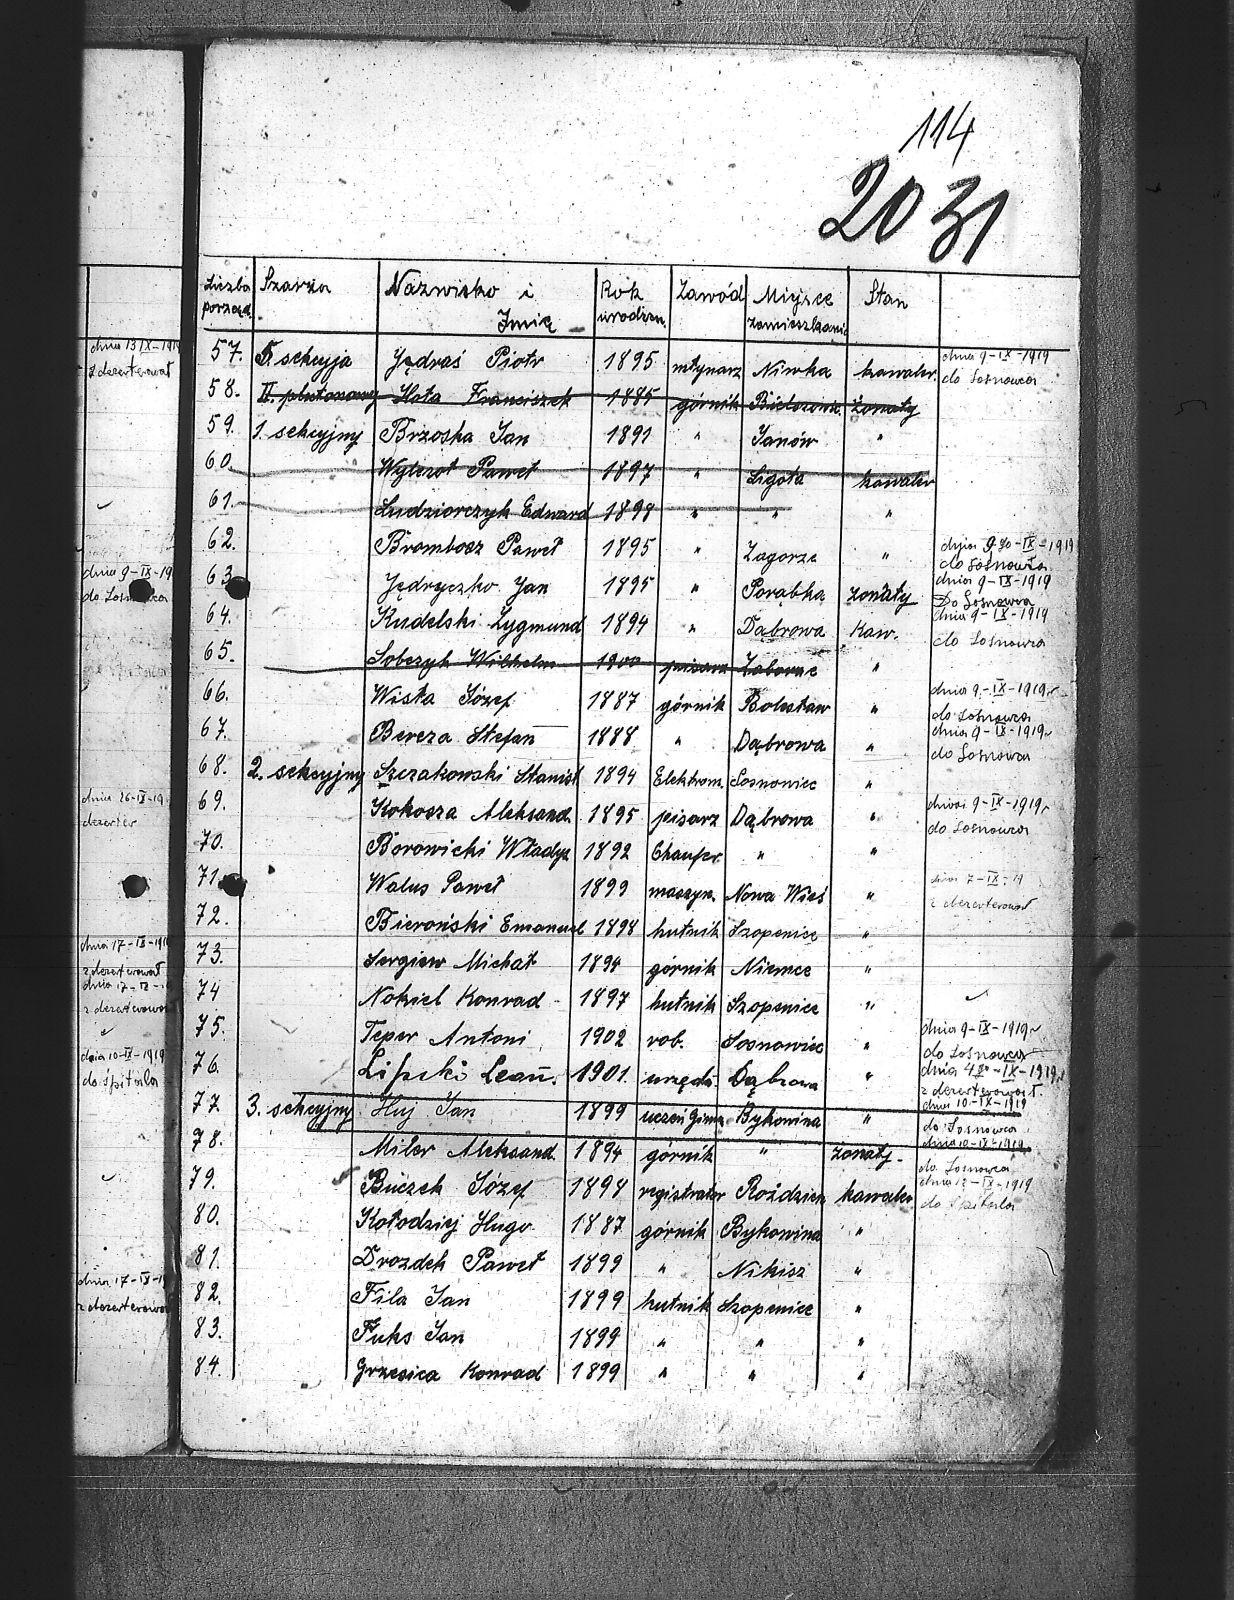 114
20 31
Liczba porząd. Szarża Nazwisko i Imię Rok urodzen. Zawód Miejsce zamieszkania Stan
57. 5 sekcyja Jędraś Piotr 1895 młynarz Niwka kawaler. dnia 9-IX-1919 do Sosnowca
58. II. plutonowy Hota Franciszek 1885 górnik żonaty
59. 1. sekcyjny Brzoska Jan 1891 " Janów "
60. Paweł 1897 " Ligota kawaler
61. Ludziorczyk Edward 1898 " " "
62. Brombosz Paweł 1895 " Zagorze " dnia IX-1919 do Sosnowca
63. Jędryczko Jan 1895 " Porąbka żonaty dnia 9-IX-1919 Do Sosnowca
64. Kudelski Zygmund 1894 " Dąbrowa kaw. dnia 9-IX-1919 do Sosnowca
65. Sobczyk Wilhelm 1900 pisarz Zaborze "
66. Wisła Józef 1887 górnik Bolesław " dnia 9-IX-1919 do Sosnowca
67. Bereza Stefan 1888 " Dąbrowa " dnia 9-IX-1919 do Sosnowca
68. 2. sekcyjny Szczakowski Stanisł 1894 Elektrom. Sosnowiec "
69. Kokosza Aleksand. 1895 pisarz Dąbrowa " dnia 9-IX-1919 do Sosnowca
70. Borowicki Władys 1892 Chaufer " "
71. Walus Paweł 1899 maszyn. Nowa Wieś " dnia 7-IX-19 z dezerterował
72. Bieroński Emanuel 1898 hutnik Szopenice "
73. Sergiew Michał 1894 górnik Niemce "
74 Nokiel Konrad 1897 hutnik Szopenice "
75. Teper Antoni 1902 rob. Sosnowiec " dnia 9-IX-1919 do Sosnowca
76. Lipski Lean. 1901. urzędn. Dąbrowa " dnia IX-1919 z dezerterował.
77. 3. sekcyjny Huj Jan 1899 uczeń Gimn. Bykowina " dnia 10-IX-1919 do Sosnowca
78. Miler Aleksand. 1894 górnik " żonaty. dnia 10-IX-1919 do Sosnowca
79. Buczek Józef 1898 registrator Roździen kawaler dnia 12-IX-1919 do Szpitala
80. Kołodziej Hugo 1887 górnik Bykowina "
81. Drozdek Paweł 1899 " Nikisz "
82. Fila Jan 1899 hutnik Szopenice "
83. Fuks Jan 1899 " " "
84. Grzesica Konrad 1899 " " "
dnia 13 IX-1919
z dezerterował
dnia 9-IX-19
do Sosnowca
dnia 26-IX-19
dezerter
dnia 17-IX-191
z dezerterował
dnia 17-IX-19
z dezerterował
dnia 10-IX-1919
do szpitala
dnia 17-IX-1
z dezerterował